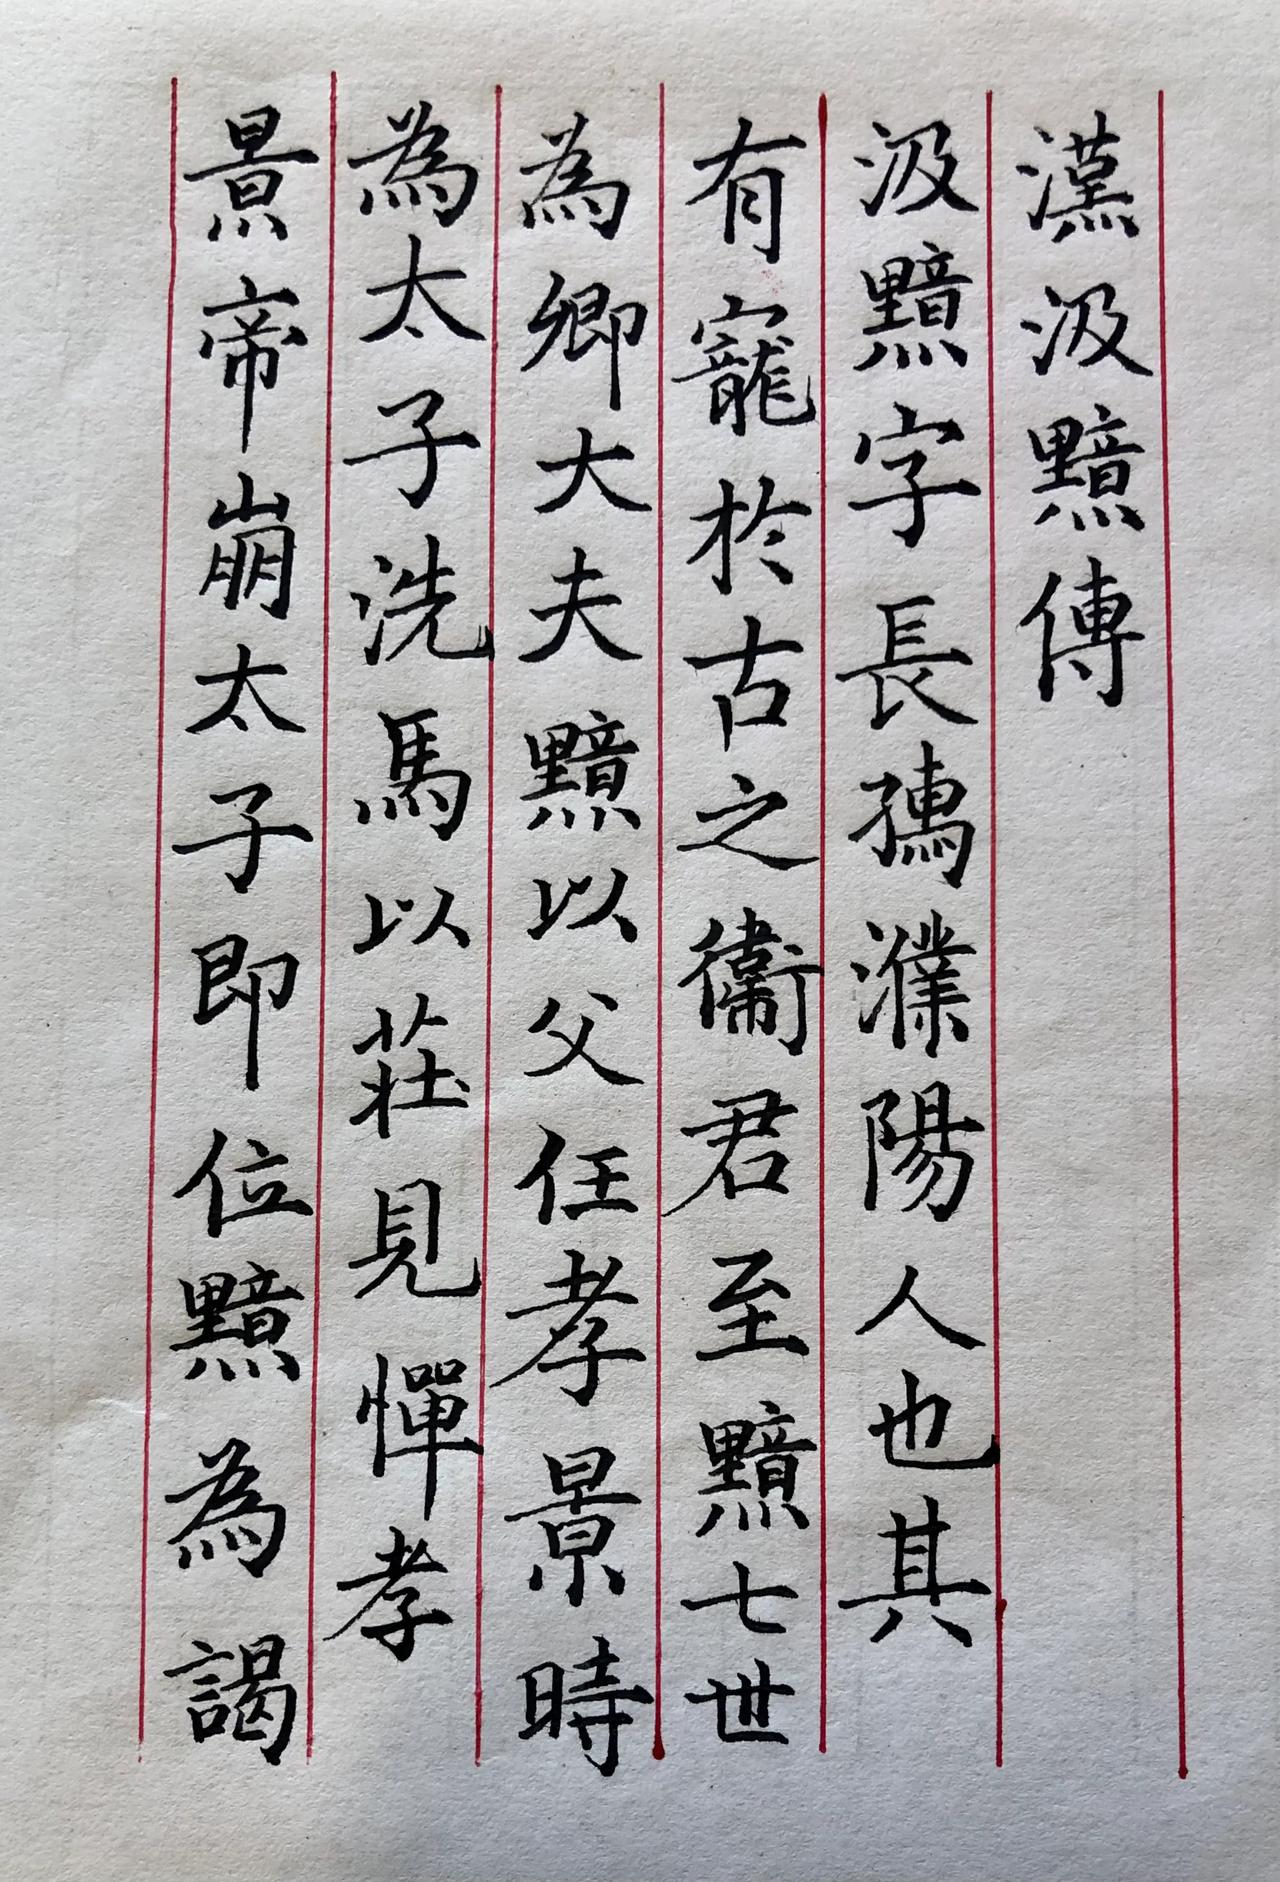 漢汲黯傳
汲黯字長孺濮陽人也其
有寵於古之衞君至黯七世
為卿大夫黯以父任孝景時
為太子洗馬以莊見憚孝
景帝崩太子即位黯為謁